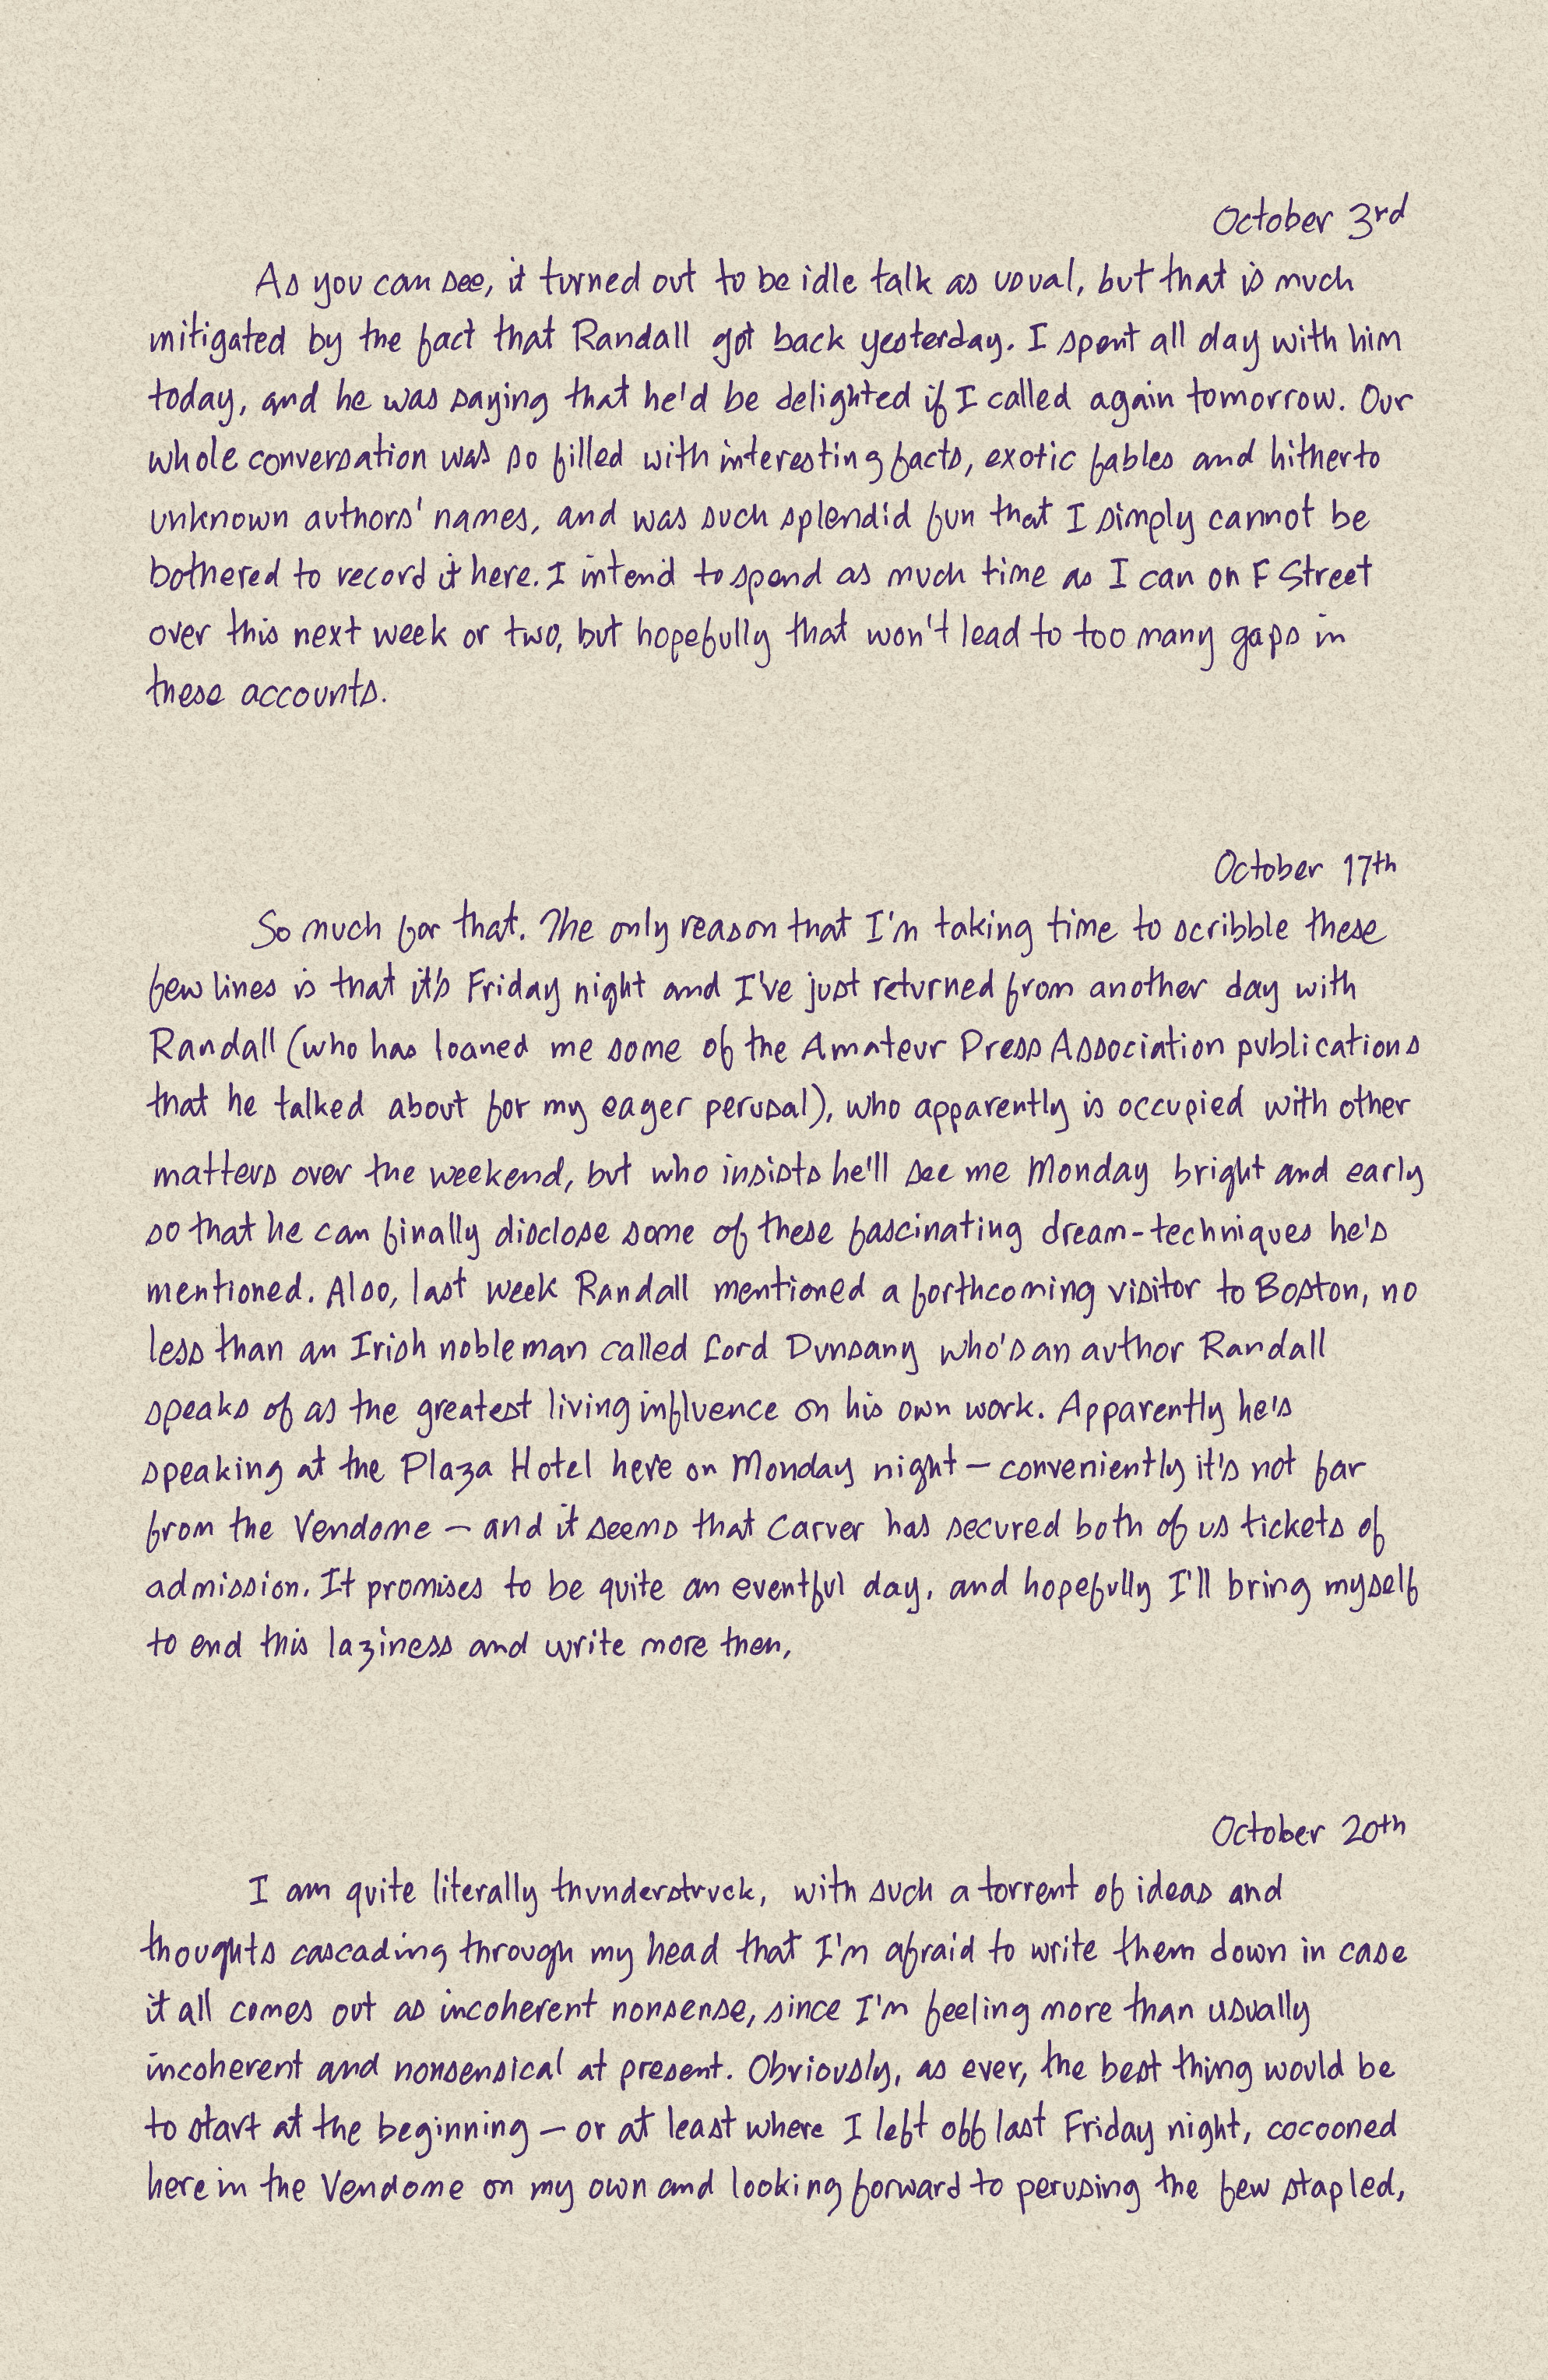 October 3rd
As you can see, it turned out to be idle talk as usual, but that is much
mitigated by the fact that Randall got back yesterday. I spent all day with him
today, and he was saying that he'd be delighted if I called again tomorrow. Our
whole conversation was so filled with interesting facts, exotic fables and hitherto
unknown authors' names, and was such splendid fun that I simply cannot be
bothered to record it here. I intend to spend as much time as I can on F Street
over this next week or two, but hopefully that won't lead to too many gaps in
these accounts.
October 17th
So much for that. The only reason that I'm taking time to scribble these
few lines is that it's Friday night and I've just returned from another day with
Randall (who has loaned me some of the Amateur Press Association publications
that he talked about for my eager perusal), who apparently is occupied with other
matters over the weekend, but who insists he'll see me Monday bright and early
so that he can finally disclose some of these fascinating dream-techniques he's
mentioned. Also, last week Randall mentioned a forthcoming visitor to Boston, no
less than an Irish nobleman called Lord Dunsany who's an author Randall
speaks of as the greatest living influence on his own work. Apparently he's
speaking at the Plaza Hotel here on Monday night — conveniently it's not far
from the Vendome — and it seems that Carver has secured both of us tickets of
admission. It promises to be quite an eventful day, and hopefully I'll bring myself
to end this laziness and write more then,
October 20th
I am quite literally thunderstruck, with such a torrent of ideas and
thoughts cascading through my head that I'm afraid to write them down in case
it all comes out as incoherent nonsense, since I'm feeling more than usually
incoherent and nonsensical at present. Obviously, as ever, the best thing would be
to start at the beginning — or at least where I left off last Friday night, cocooned
here in the Vendome on my own and looking forward to perusing the few stapled,